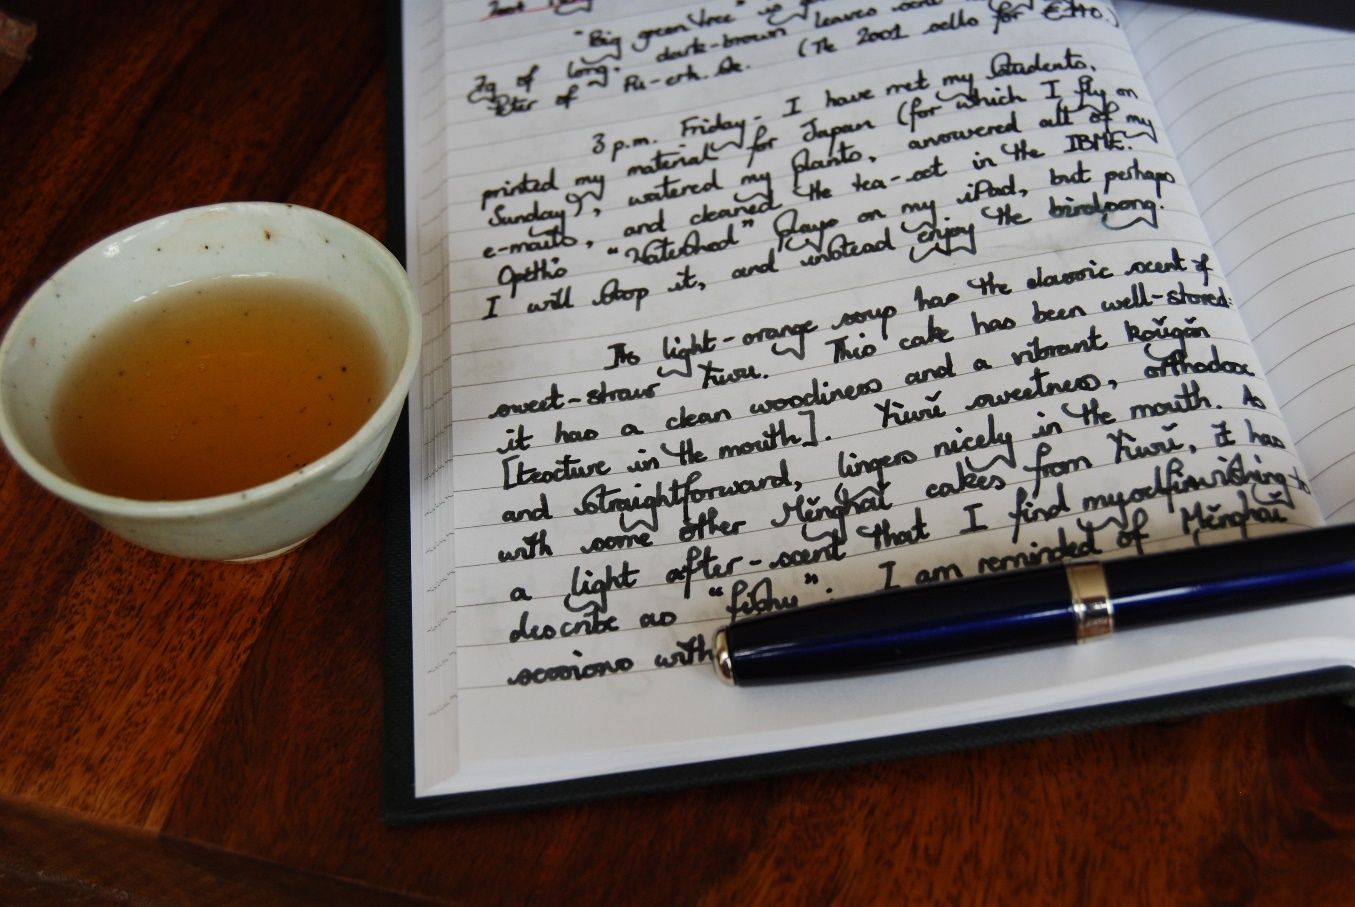 "Big green tree" is
7g of long, dark-brown leaves
Peter of Pu-erh.sk. (The 2001 sells for £170.)
3 p.m. Friday - I have met my students,
printed my material for Japan (for which I fly on
Sunday), watered my plants, answered all of my
e-mails, and cleaned the tea-set in the IBME.
Opeth's "Watershed" plays on my iPad, but perhaps
I will stop it, and instead enjoy the birdsong.
Its light-orange soup has the classic scent of
sweet-straw Yiwu. This cake has been well-stored:
it has a clean woodiness and a vibrant kǒugǎn
[texture in the mouth]. Yìwǔ sweetness, orthodox
and straightforward, lingers nicely in the mouth. As
with some other Měnghǎi cakes from Yìwǔ, it has
a light after-scent that I find myself wishing to
describe as "fishy". I am reminded of Měnghǎi
sessions with